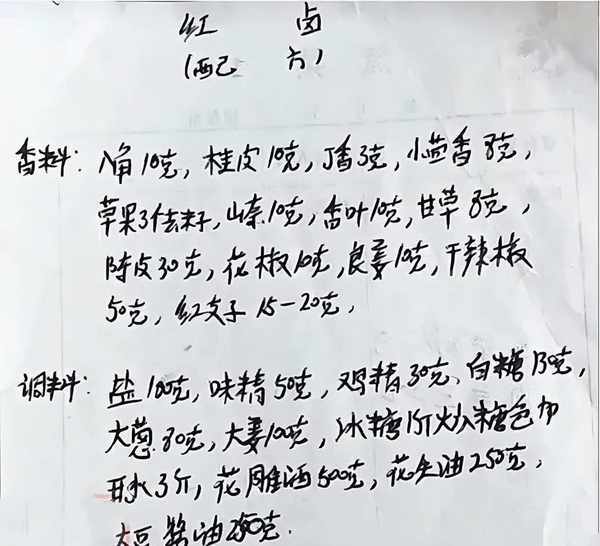 红 卤
(配 方)
香料: 八角10克, 桂皮10克, 丁香3克, 小茴香8克,
草果3个去籽, 山奈10克, 香叶10克, 甘草8克,
陈皮30克, 花椒10克, 良姜10克, 干辣椒
50克, 红支子15-20克,
调料: 盐100克, 味精50克, 鸡精30克, 白糖130克,
大葱30克, 大姜100克, 冰糖1斤炒糖色加
开水3斤, 花雕酒500克, 花生油250克,
大豆酱油250克.